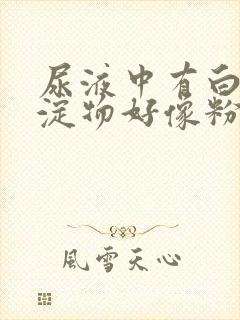 尿液中有白
淀物好像粉
風雪天心